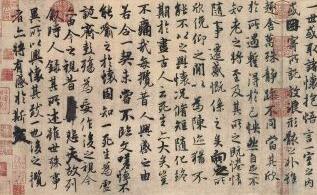 一世或取諸懷抱悟言一室之
因寄所託放浪形骸之外雖
趣舍萬殊靜躁不同當其欣
於所遇蹔得於己怏然自足不
知老之將至及其所之既惓情
隨事遷感慨係之矣向之所
欣俛仰之閒以為陳迹猶不
能不以之興懷況脩短隨化終
期於盡古人云死生亦大矣豈
不痛哉每攬昔人興感之由
若合一契未嘗不臨文嗟悼不
能喻之於懷固知一死生為虛
誕齊彭殤為妄作後之視今
亦由今之視昔悲夫故列
敘時人錄其所述雖世殊事
異所以興懷其致一也後之攬
者亦將有感於斯